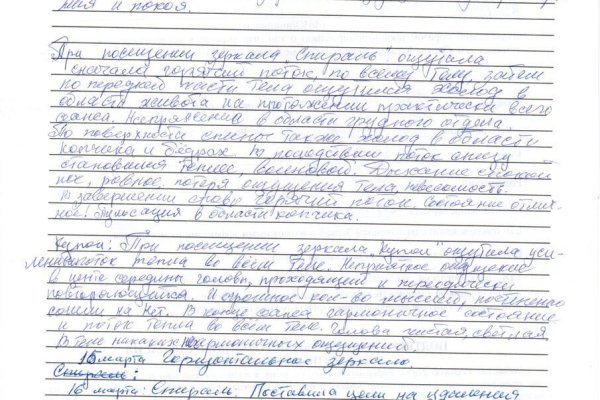 ния и покоя.
При посещении зеркала "Спираль" ощущала
сначала горячий поток, по всему телу, затем
по передней части тела ощущался холод в
области живота на протяжении практически всего
сеанса. Напряжение в области грудного отдела.
По поверхности спины также холод в области
копчика и бедрах. В последствии поток снизу
становился теплее, волновой. Дыхание спокой
ное, ровное, потеря ощущения тела, невесомость.
В завершении снова горячий поток. Состояние отлич-
ное. Пульсация в области копчика.
Купол: При посещении зеркала "Купол" ощутила уси-
ление поток тепла во всём теле. Неприятное ощущение
в центе середины головы, проходящий и переодически
повторяющийся. И огромное кол-во мыслей, постепенно
сошли на нет. В конце сеанса гармоничное состояние
и поток тепла во всём теле. Голова чистая, светлая
В теле никаких негармоничных ощущений.
15 марта Горизонтальное зеркало.
Спираль:
16 марта: Спираль. Поставила цели на